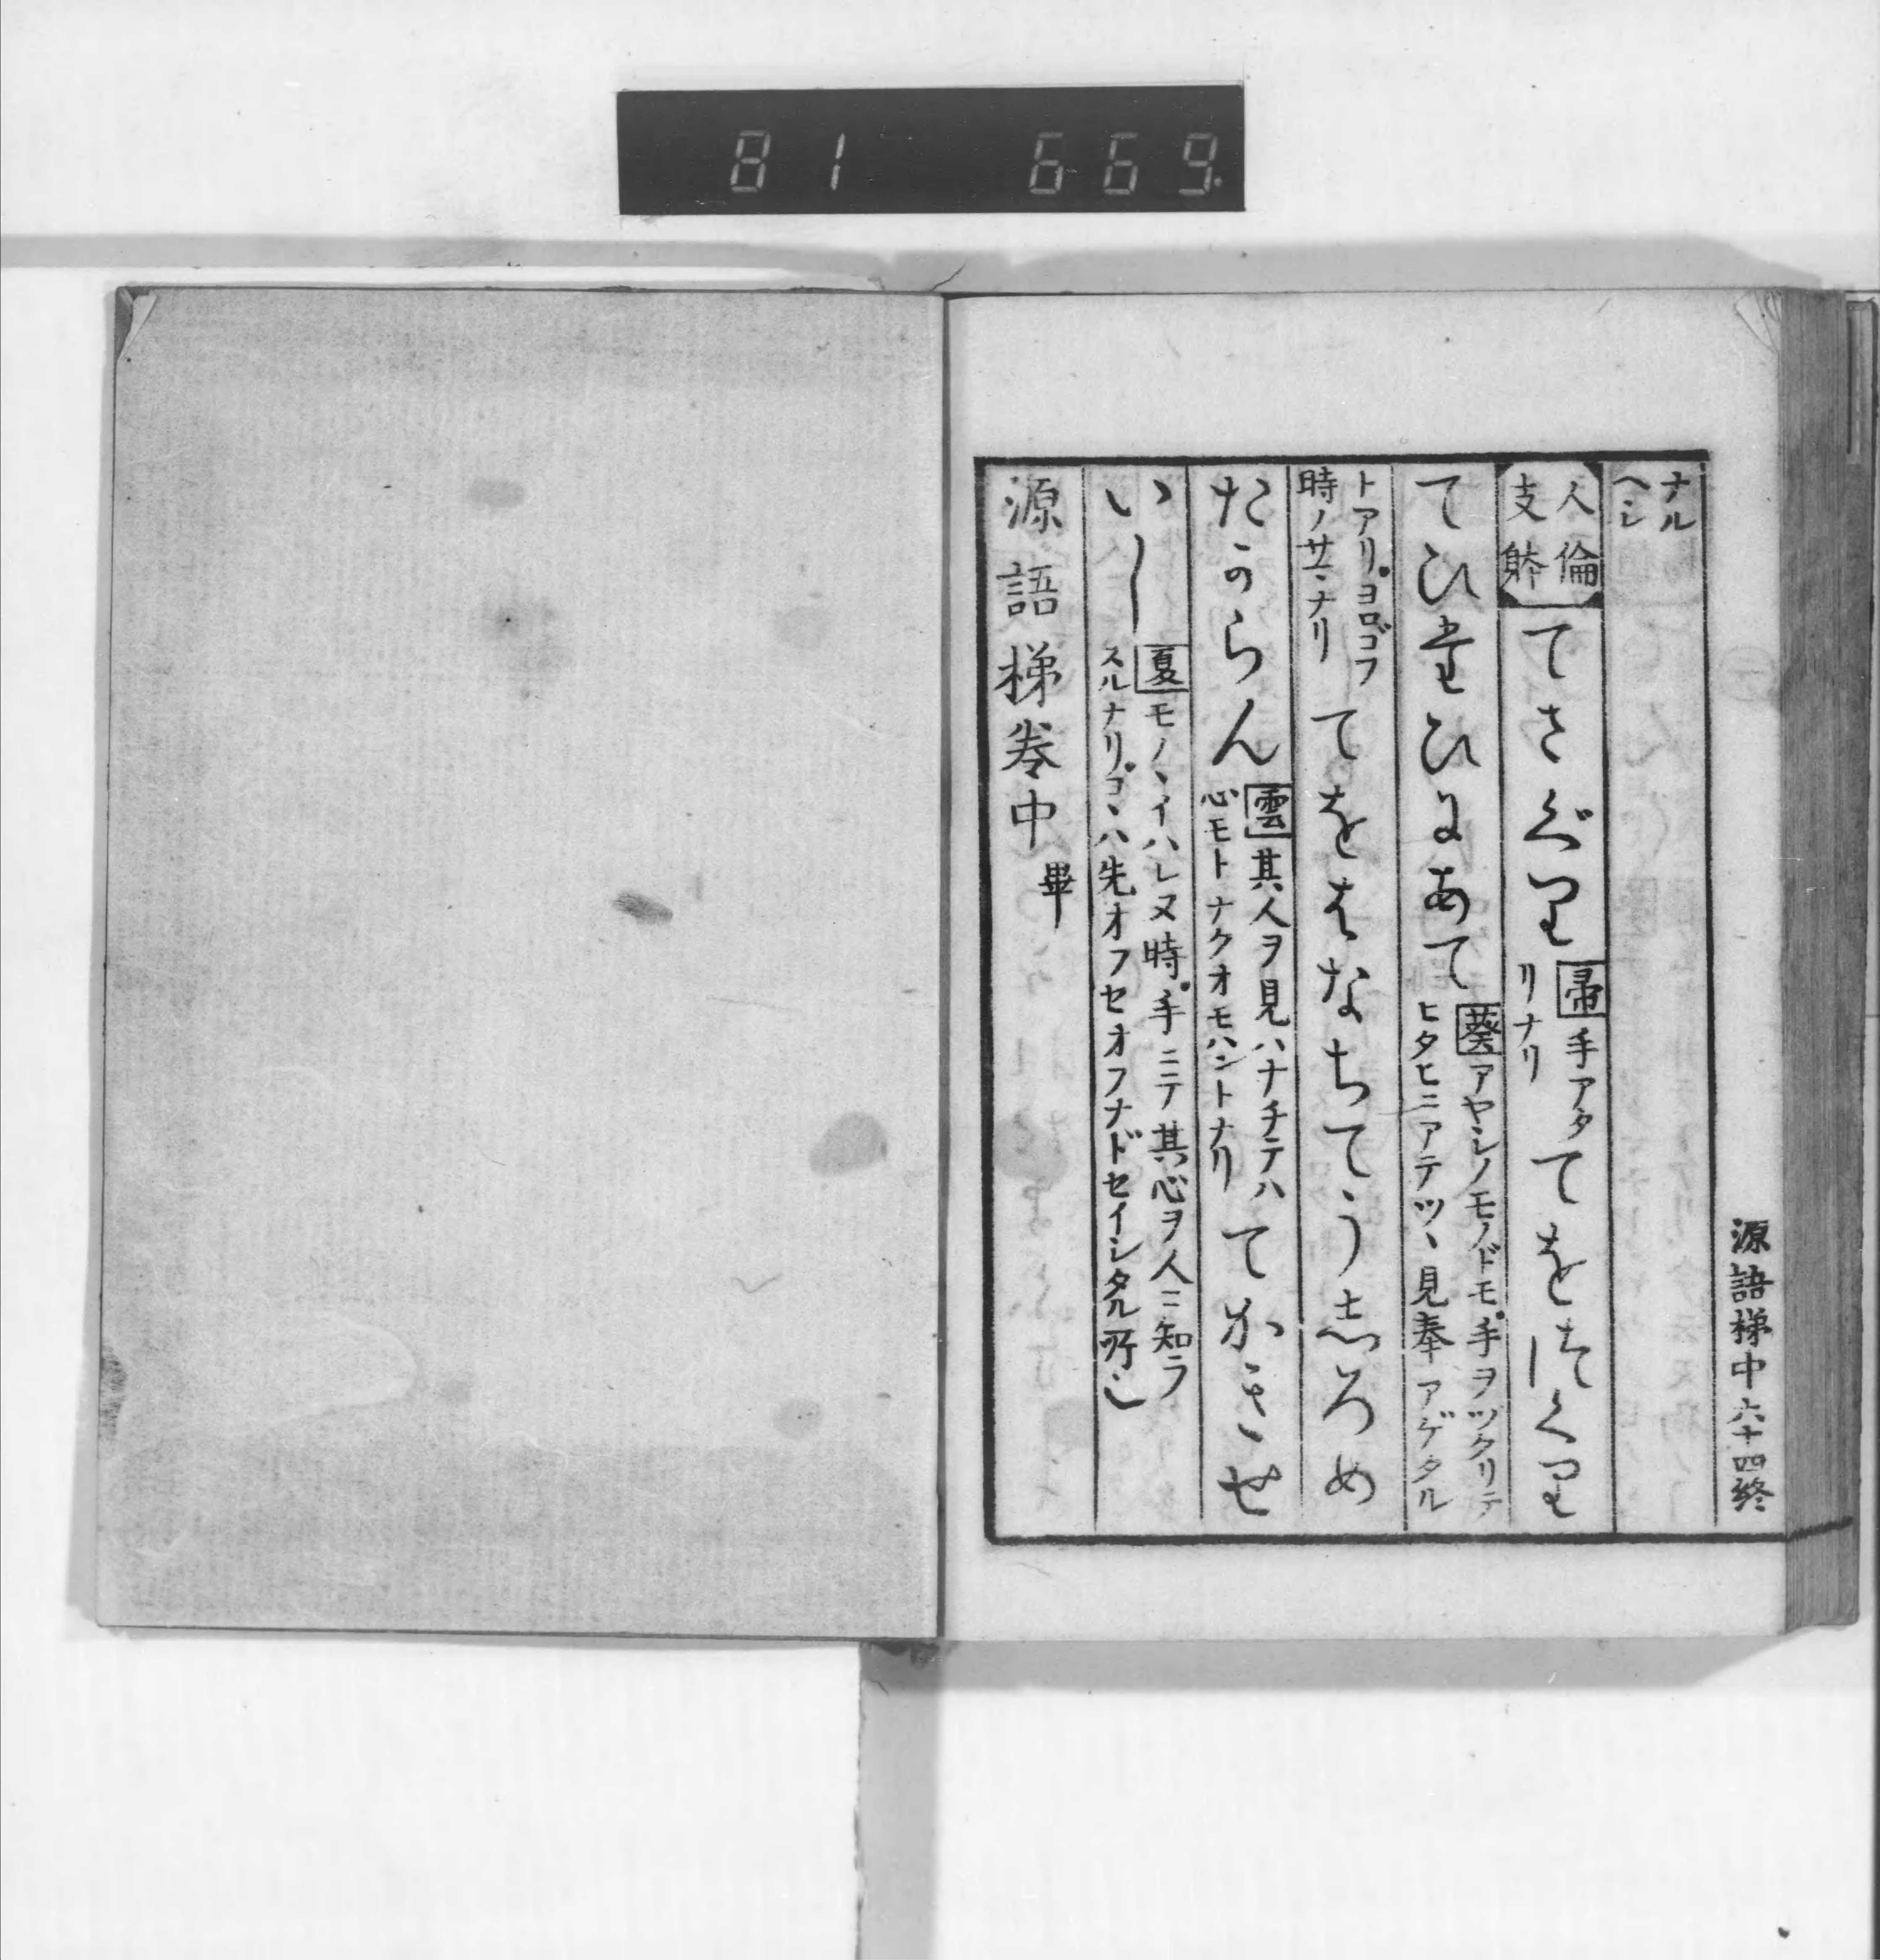 81 669.
源語梯中 六十四終
ナル
ヘシ
人倫
支躰
てさぐり
帚 手アタ
リナリ
てをつくり
てひたひにあて
葵 アヤシノモノドモ手ヲツクリテ
ヒタヒニアテツヽ見奉アゲタル
トアリヨロゴフ
時ノサマナリ
てをはなちてうしろめ
たからん
雲 其人ヲ見ハナチテハ
心モトナクオモハントナリ
てかきせ
いし
夏 モノヽイハレヌ時手ニテ其心ヲ人ニ知ラ
スルナリコヽハ先オフセオフナドセイシタル所也
源語梯巻中 畢